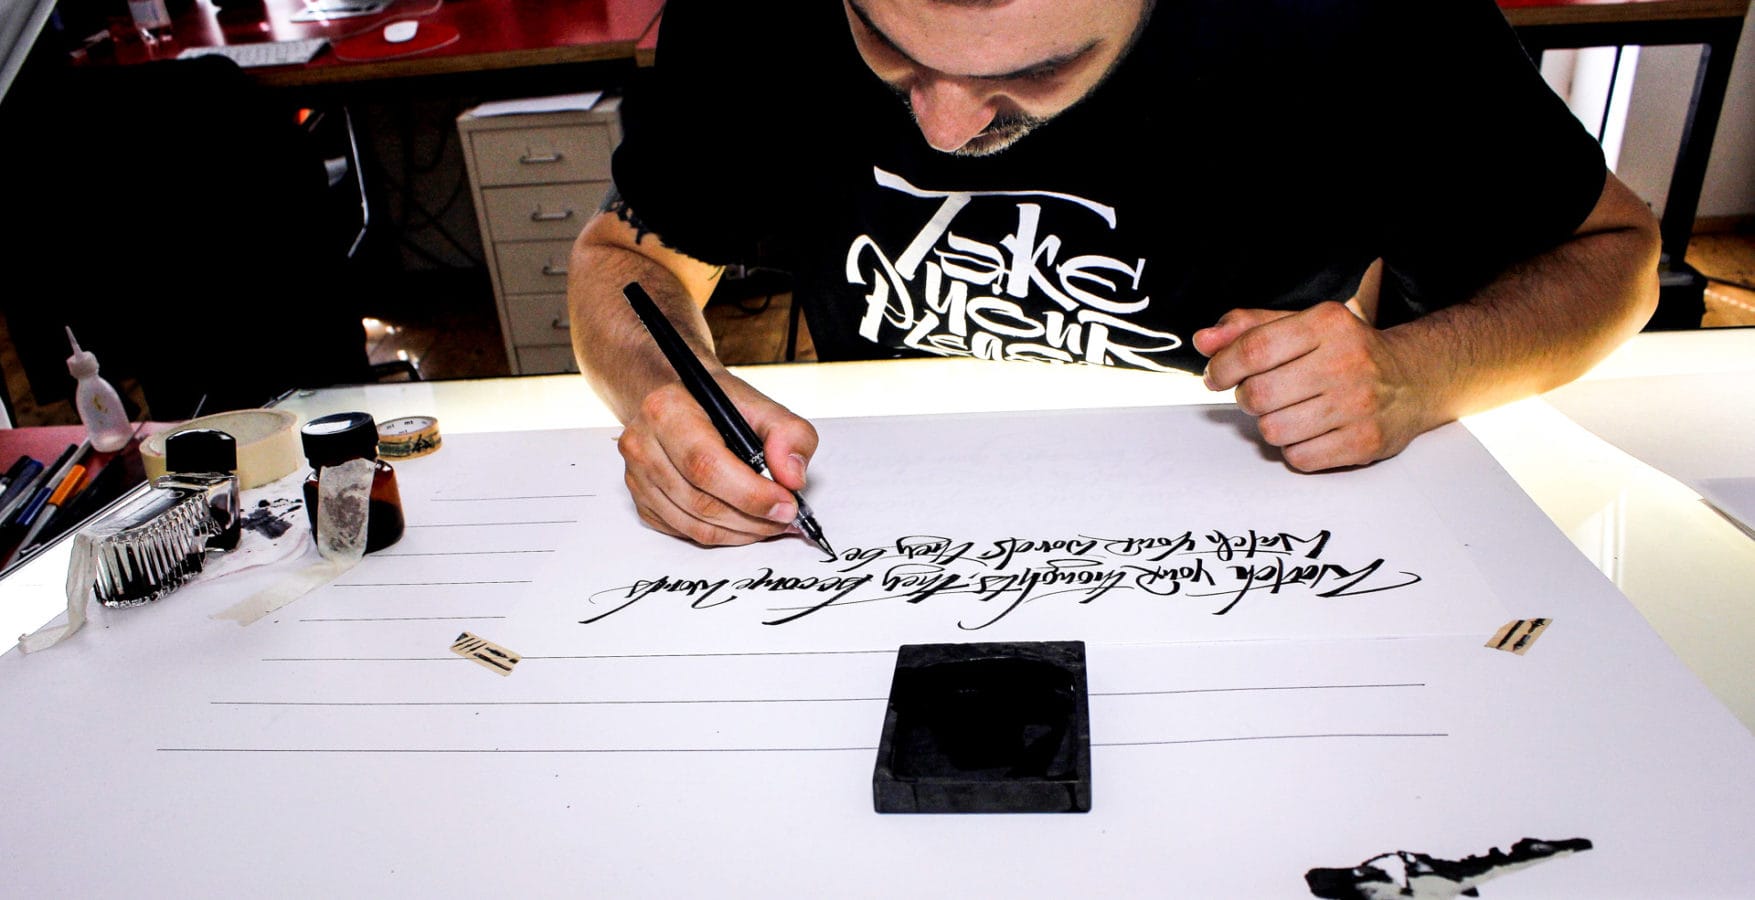 Take
your
Watch your thoughts, they become words
Watch your words, they be
mt mt